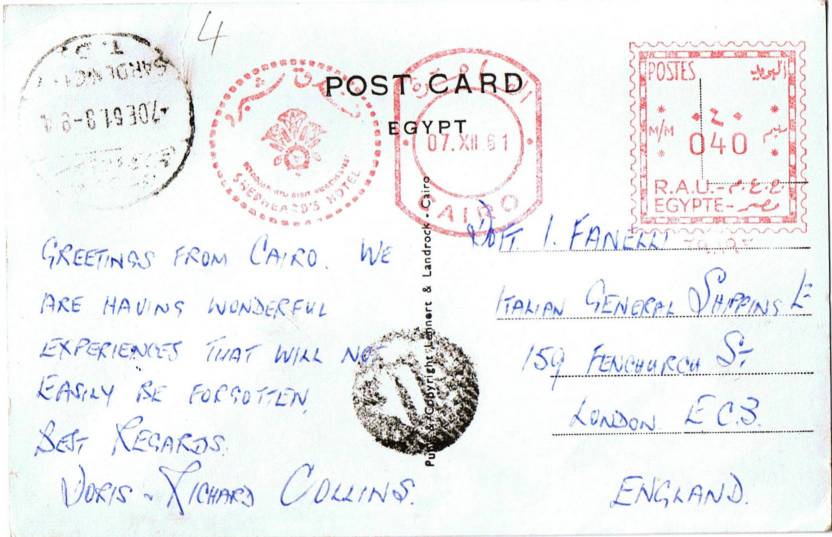 4
POST CARD
EGYPT
SHEPHEARD'S HOTEL
07.XII.61
CAIRO
POSTES البريد
M/M ٠٤٠ مليم
040
R.A.U.-ج.ع.م
EGYPTE-مصر
7DE61.8-9
GARDENCITY
Copyright Lehnert & Landrock - Cairo
GREETINGS FROM CAIRO. WE
ARE HAVING WONDERFUL
EXPERIENCES THAT WILL NOT
EASILY BE FORGOTTEN.
BEST REGARDS.
DORIS & RICHARD COLLINS.
DOTT I. FANELLI
ITALIAN GENERAL SHIPPING
159 FENCHURCH ST
LONDON E.C.3.
ENGLAND.